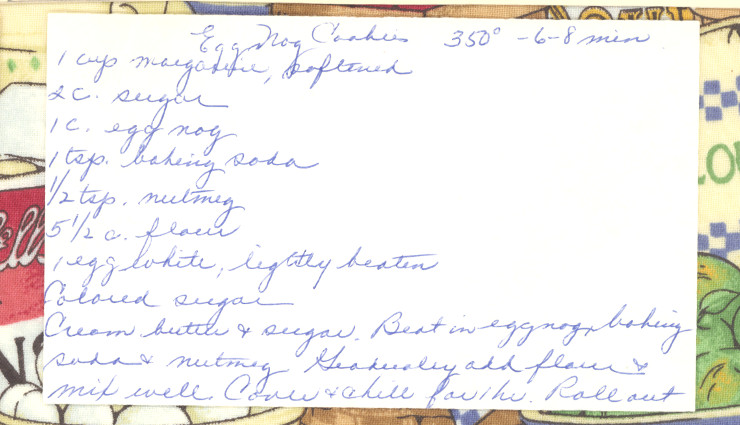 Egg Nog Cookies 350° - 6-8 min
1 cup margarine, softened
2 c. sugar
1 c. egg nog
1 tsp. baking soda
1/2 tsp. nutmeg
5 1/2 c. flour
1 egg white, lightly beaten
Colored sugar
Cream butter & sugar. Beat in eggnog, baking
soda & nutmeg Gradually add flour &
mix well. Cover & chill for 1 hr. Roll out